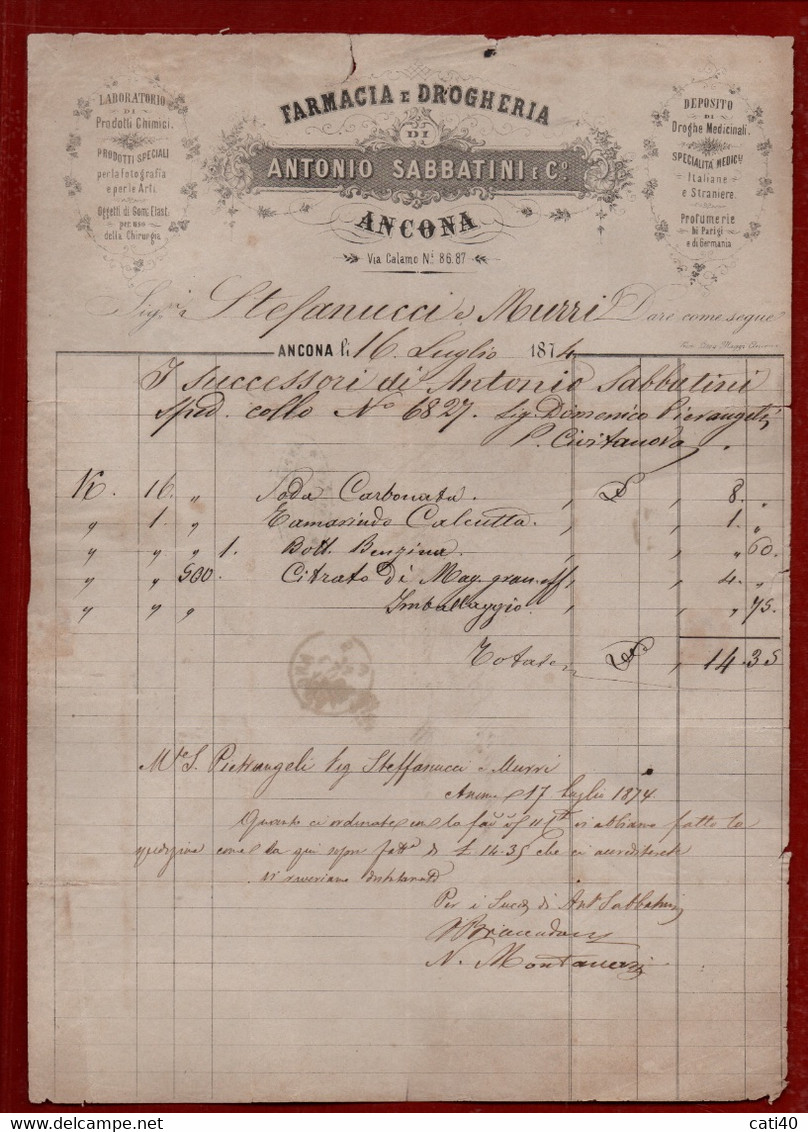 LABORATORIO
DI
Prodotti Chimici.
PRODOTTI SPECIALI
per la fotografia
e per le Arti.
Oggetti di Gom. Elast.
per uso
della Chirurgia
FARMACIA E DROGHERIA
DI
ANTONIO SABBATINI E C.º
ANCONA
Via Calamo N.i 86.87
DEPOSITO
DI
Droghe Medicinali.
SPECIALITÀ MEDICH
Italiane
e Straniere.
Profumerie
di Parigi
e di Germania
Sig.ri Stefanucci e Murri Dare come segue
ANCONA li 16. Luglio 1874
I successori di Antonio Sabbatini
sped. collo Nº 6827. Sig. Domenico Pierangeli
P. Civitanova.
K. 16. " Soda Carbonata. , , 8. "
" 1. " Tamarindo Calcutta. , , 1. "
" " " 1. Bott. Benzina. , , " 60.
" " 500. Citrato di Mag. gran. eff , , 4. "
" " " Imballaggio. , , " 75.
Totale , 14.35
S. Pietrangeli Sig Steffanucci e Murri
17 luglio 1874.
Quanto ci ordinate vi abbiamo fatto la
di £ 14.35 che ci accrediterete
Per i Succ di Ant Sabbatini
N. Montanari
cati40